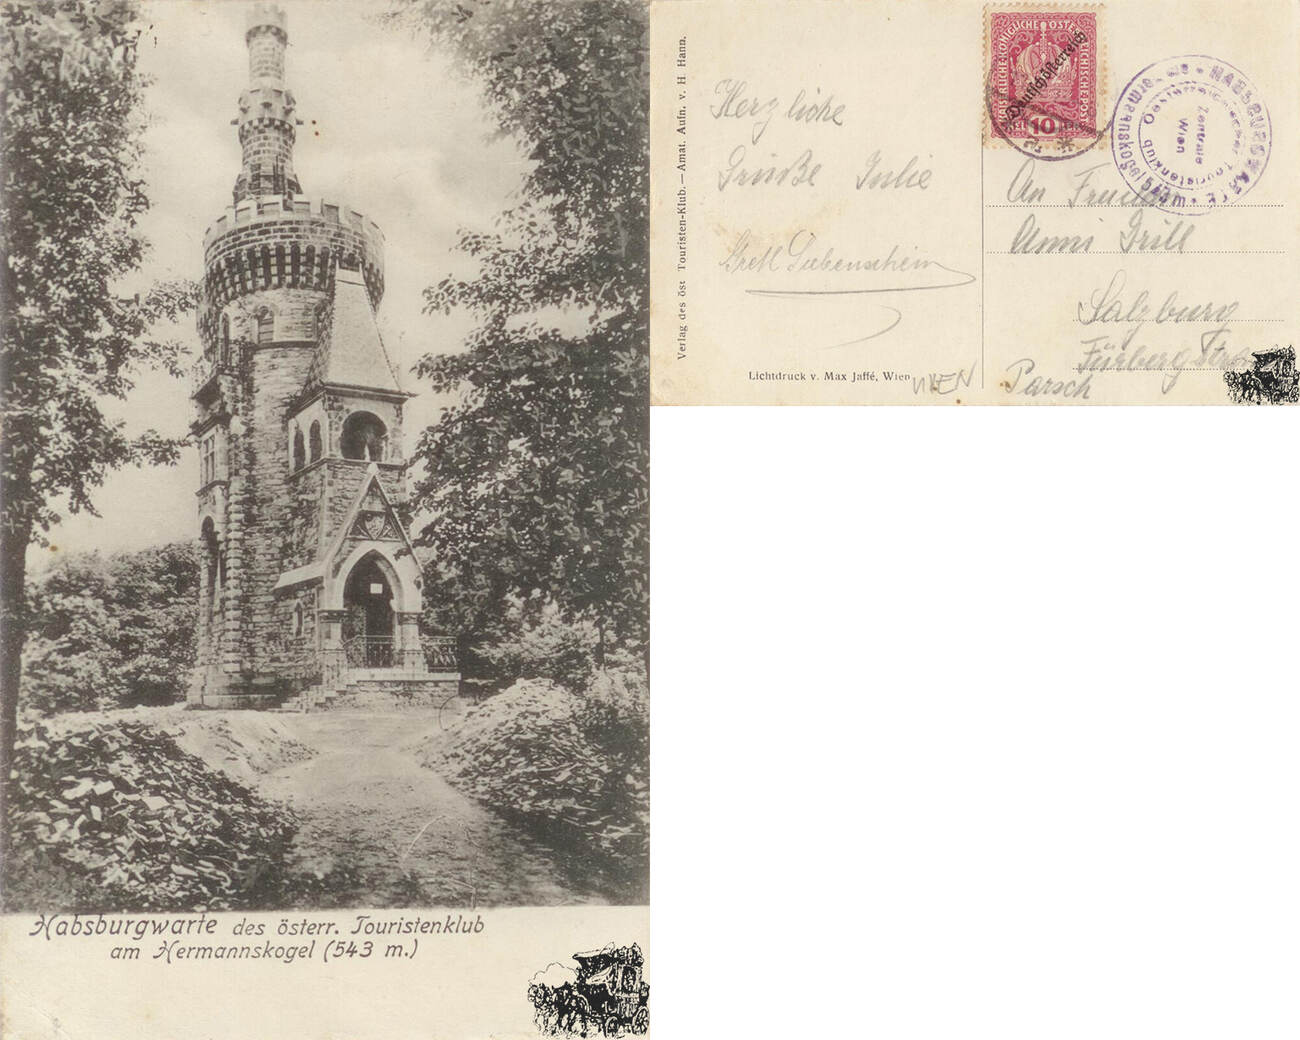 Habsburgwarte des österr. Touristenklub
am Hermannskogel (543 m.)
Verlag des öst Touristen-Klub. — Amat. Aufn. v. H. Hann.
Herzliche
Grüße Julie
Gretl
Lichtdruck v. Max Jaffé, Wien
WIEN
KAISERLICHE KÖNIGLICHE ÖSTERREICHISCHE POST
Deutschösterreich
10
HABSBURGWARTE
Hermannskogel 543 m
Oesterreichischer Touristenklub
Zentrale
Wien
An
Anni Grill
Salzburg
Parsch